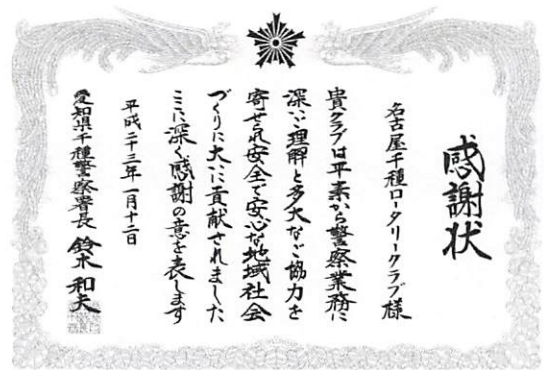 感謝状
名古屋千種ロータリークラブ様
貴クラブは平素から警察業務に
深いご理解と多大なご協力を
寄せられ安全で安心な地域社会
づくりに大いに貢献されました
ここに深く感謝の意を表します
平成二十三年一月十二日
愛知県千種警察署長 鈴木和夫